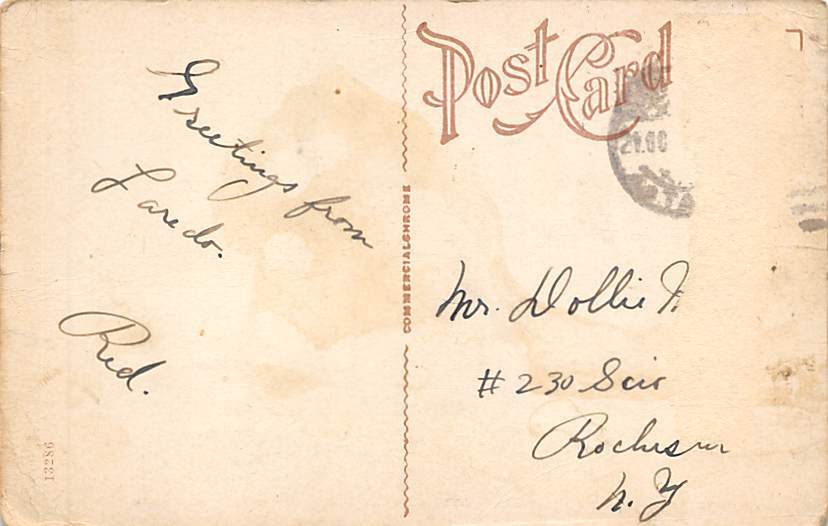 Greetings from
Laredo.
Red.
13286
COMMERCIALCHROME
Post Card
Mr. Dollie
# 230 Scio
Rochester
N. Y